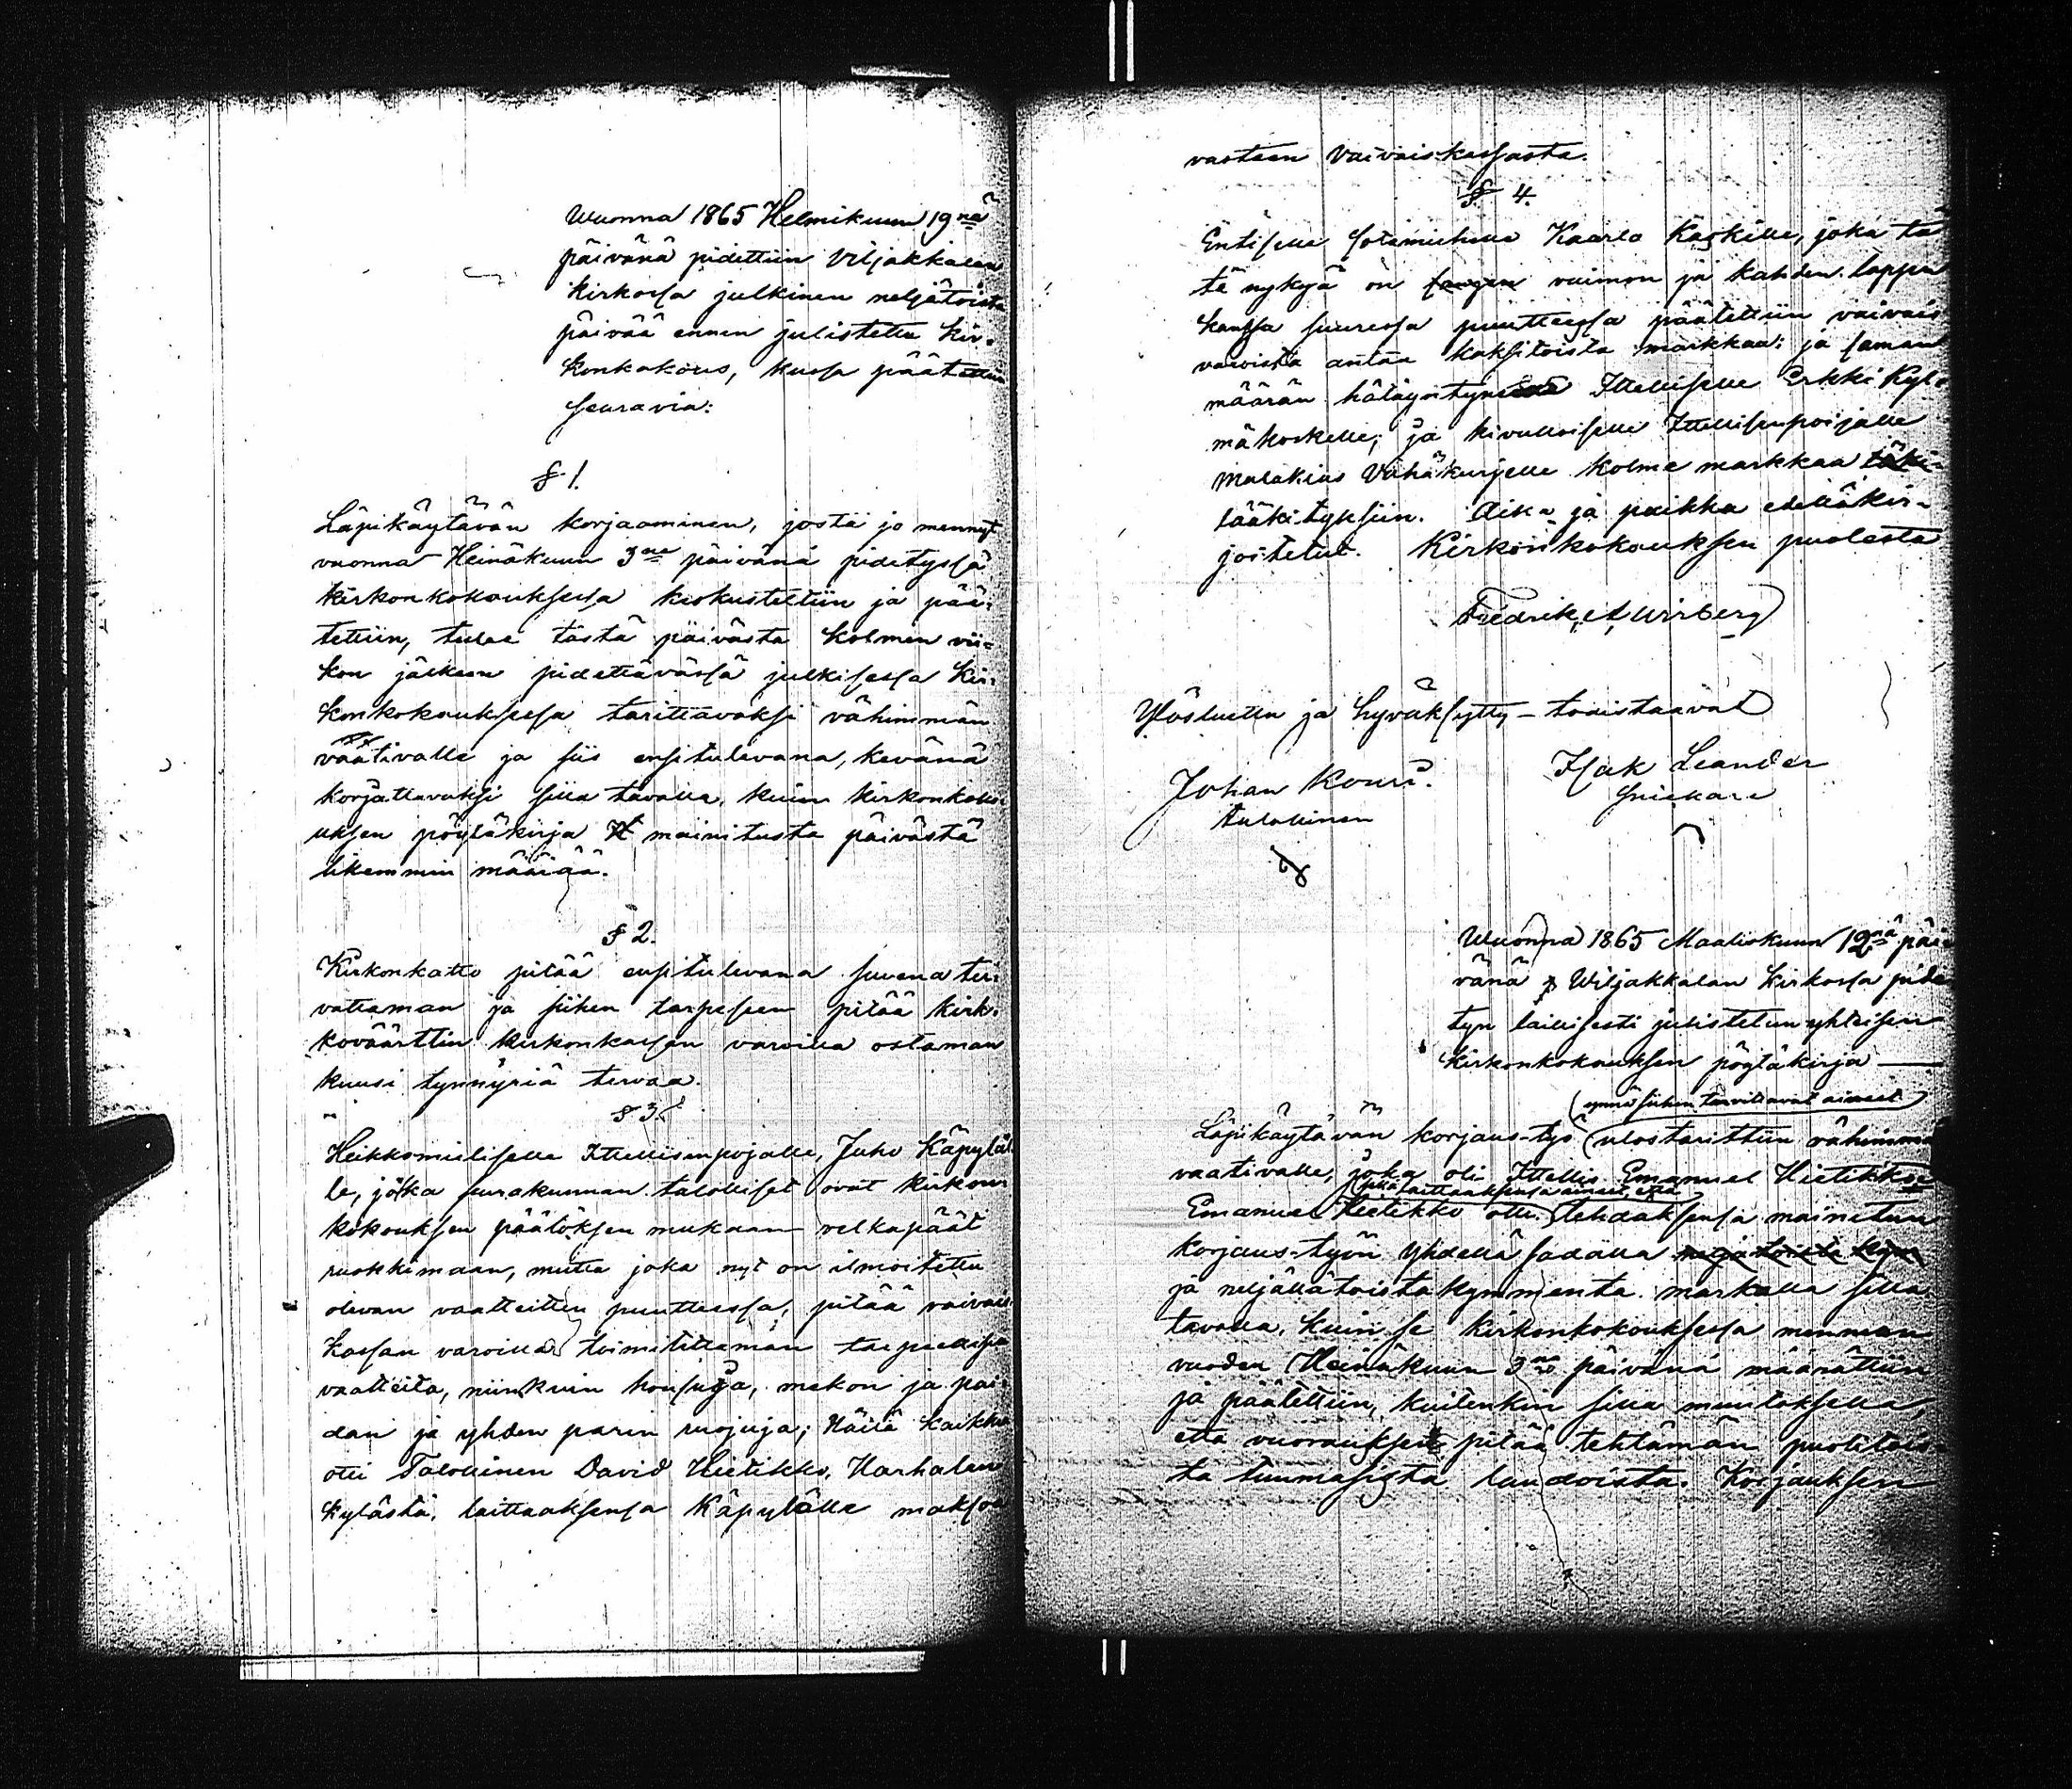 Wuonna 1865 Helmikuun 19nä
päivänä pidettiin Viljakkalan
kirkossa julkinen neljätoista
päivää ennen julistettu Kir-
konkokous, kussa päätettiin
seuravia:
§ 1.
Läpikäytävän korjaaminen, josta jo mennyt
vuonna Heinäkuun 3na päivänä pidetyssä
kirkonkokouksessa keskusteltiin ja pää-
tettiin, tulee tästä päivästä kolmen vii-
kon jälkeen pidettävässä julkisessa Kir-
konkokouksessa tarittavaksi vähimmän
vaativalle ja siis ensitulevana, kevänä
korjattavaksi sillä tavalla, kuin kirkonkoko-
uksen pöytäkirja mainitusta päivästä
likemmin määrää.
§ 2.
Kirkonkatto pitää ensitulevana suvena ter-
vattaman ja siihen tarpeseen pitää kirk-
koväärttin kirkonkassan varoilla ostaman
kuusi tynnyriä tervaa.
§ 3.
Heikkomieliselle Itellisenpojalle, Juho Käpyläl-
le, jotka seurakunnan talolliset ovat kirkon-
kokouksen päätöksen mukaan velkapäät
ruokkimaan, mutta joka nyt on ilmoitettu
olevan vaatteitten puutteessa, pitää vaivais-
kassan varoilla toimitettaman tarpeellisia
vaatteita, niinkuin housuja, mekon ja pai-
dan ja yhden parin ruojuja; Näitä kaikkia
otti Talollinen David Hietikko, Harhalan
kylästä, laittaaksensa Käpylälle maksoa
vasteen Vaivaiskassasta.
§ 4.
Entiselle sotamiehelle Kaarlo Kaskille, joka tä-
tä nykyä on vaimon ja kahden lapsen
kanssa suuressa puutteessa päätettiin vaivais-
varoista antaa kaksitoista markkaa: ja saman
määrän hätäyntyneelle Itelliselle Erkki Kyl-
mäkoskelle; ja kivulloiselle Itellisenpoijalle
Malakias Vähäkurjelle kolme markkaa
lääkityksiin. Aika ja paikka edelläkir-
joitetut. Kirkonkokouksen puolesta
Fredrik
Ylösluettu ja hyväksytty – todistaavat
Johan Kouri.
talollinen
Isak Leander
Wuonna 1865 Maaliskuun 12nä päi-
vänä Wiljakkalan Kirkossa pide-
tyn laillisesti julistetun yhteisen
Kirkonkokouksen pöytäkirja —
(ynnä siihen tarvittavat aineet)
Läpikäytävän korjaus-työ ulostarittiin vähimmän
vaativalle, joka oli Itellis Emanuel Hietikko
Emanuel Hietikko otti tehdäksensä mainitun
korjaus-työn Yhdellä sadalla
ja neljällätoistakymmentä markalla sillä
tavalla, kuin se Kirkonkokouksessa menneen
vuoden Heinäkuun 3na päivänä määrättiin
ja päätettiin, kuitenkin sillä muutoksella,
että vuorauksen pitää tehtämän puolitois-
ta tuumasista laudoista. Korjauksen